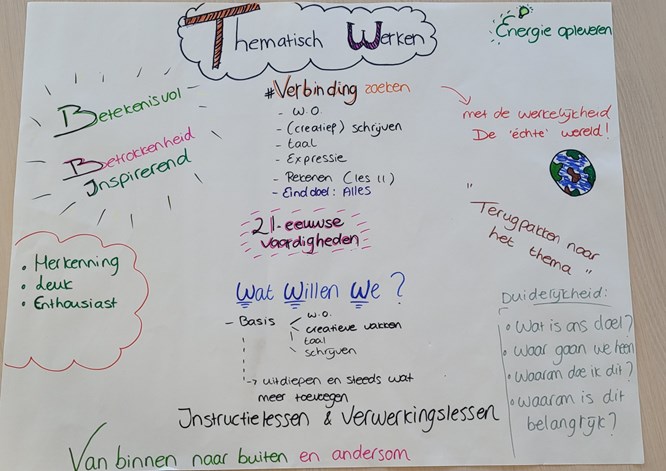 Thematisch Werken
Energie opleveren
Betekenisvol
Betrokkenheid
Inspirerend
#Verbinding zoeken
- W.O
- (creatief) schrijven
- taal
- Expressie
- Rekenen (les 11)
- Einddoel: Alles
met de werkelijkheid
De 'échte' wereld!
21-eeuwse
vaardigheden
"Terugpakken naar
het thema"
• Herkenning
• leuk
• Enthousiast
Wat Willen We?
- Basis
W.O.
creatieve vakken
taal
schrijven
-> uitdiepen en steeds wat
meer toevoegen
Duidelijkheid:
• Wat is ons doel?
• Waar gaan we heen
• Waarom doe ik dit?
• Waarom is dit
belangrijk?
Instructielessen & Verwerkingslessen
Van binnen naar buiten en andersom